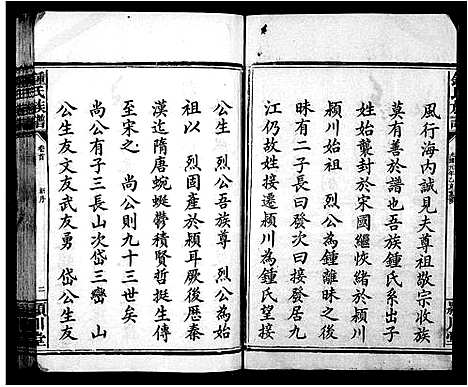 風行海內誠見夫尊祖敬宗收族
莫有善於譜也吾族鍾氏系出子
姓始襲封於宋國繼恢緒於潁川
潁川始祖 烈公為鍾離昧之後
昧有二子長曰發次曰接發居九
江仍故姓接遷潁川為鍾氏望接
公生 烈公吾族尊 烈公為始
祖以 烈固產於潁耳厥後歷秦
漢迄隋唐蜿蜒鬱積賢哲挺生傳
至宋之 尚公則九十三世矣
尚公有子三長山次岱三巒 山
公生友文友武友勇 岱公生友
鍾氏族譜
卷首
新序
二
潁川堂